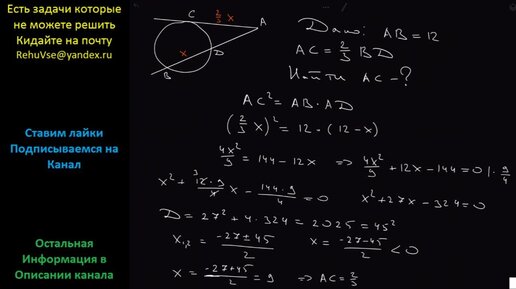 Есть задачи которые
не можете решить
Кидайте на почту
RehuVse@yandex.ru
Ставим лайки
Подписываемся на
Канал
Остальная
Информация в
Описании канала
C 2/3 x A
x D
B
Дано: AB = 12
AC = 2/3 BD
Найти AC - ?
AC² = AB · AD
(2/3 x)² = 12 · (12 - x)
4x²/9 = 144 - 12x ⇒ 4x²/9 + 12x - 144 = 0 | · 9/4
x² + 12·9/4 x - 144·9/4 = 0 x² + 27x - 324 = 0
D = 27² + 4 · 324 = 2025 = 45²
x₁,₂ = -27 ± 45/2 x = -27-45/2 < 0
x = -27+45/2 = 9 ⇒ AC = 2/3